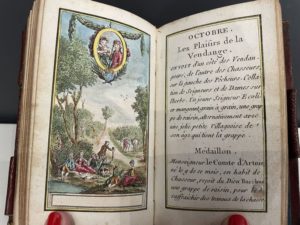 OCTOBRE.
Les Plaisirs de la
Vendange.
ON voit d'un côté des Vendan-
geurs, de l'autre des Chasseurs,
sur la gauche des Pêcheurs. Colla-
tion de Seigneurs et de Dames sur
l'herbe. Un jeune Seigneur Ecoli-
er mangeant, grain à grain, une grap-
pe de raisin, alternativement avec
une jolie petite Villageoise de
son âge qui tient la grappe.
Médaillon.
Monseigneur le Comte d'Artois
né le 9 de ce mois, en habit de
Chasseur, reçoit du Dieu Bacchus
une grappe de raisin, pour le
raffraichir des travaux de la chasse.